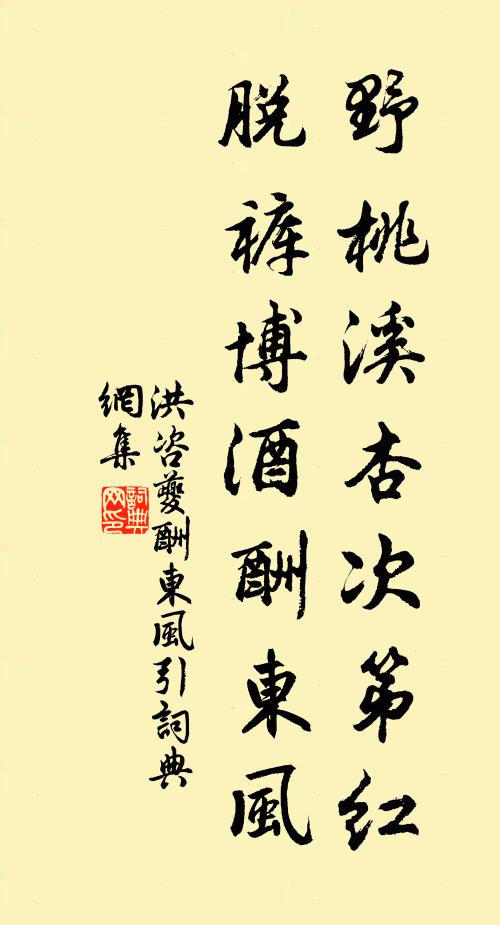 野桃溪杏次第紅
脱褲博酒酬東風
洪咨夔酬東風引詞典
網集
詞典
网印